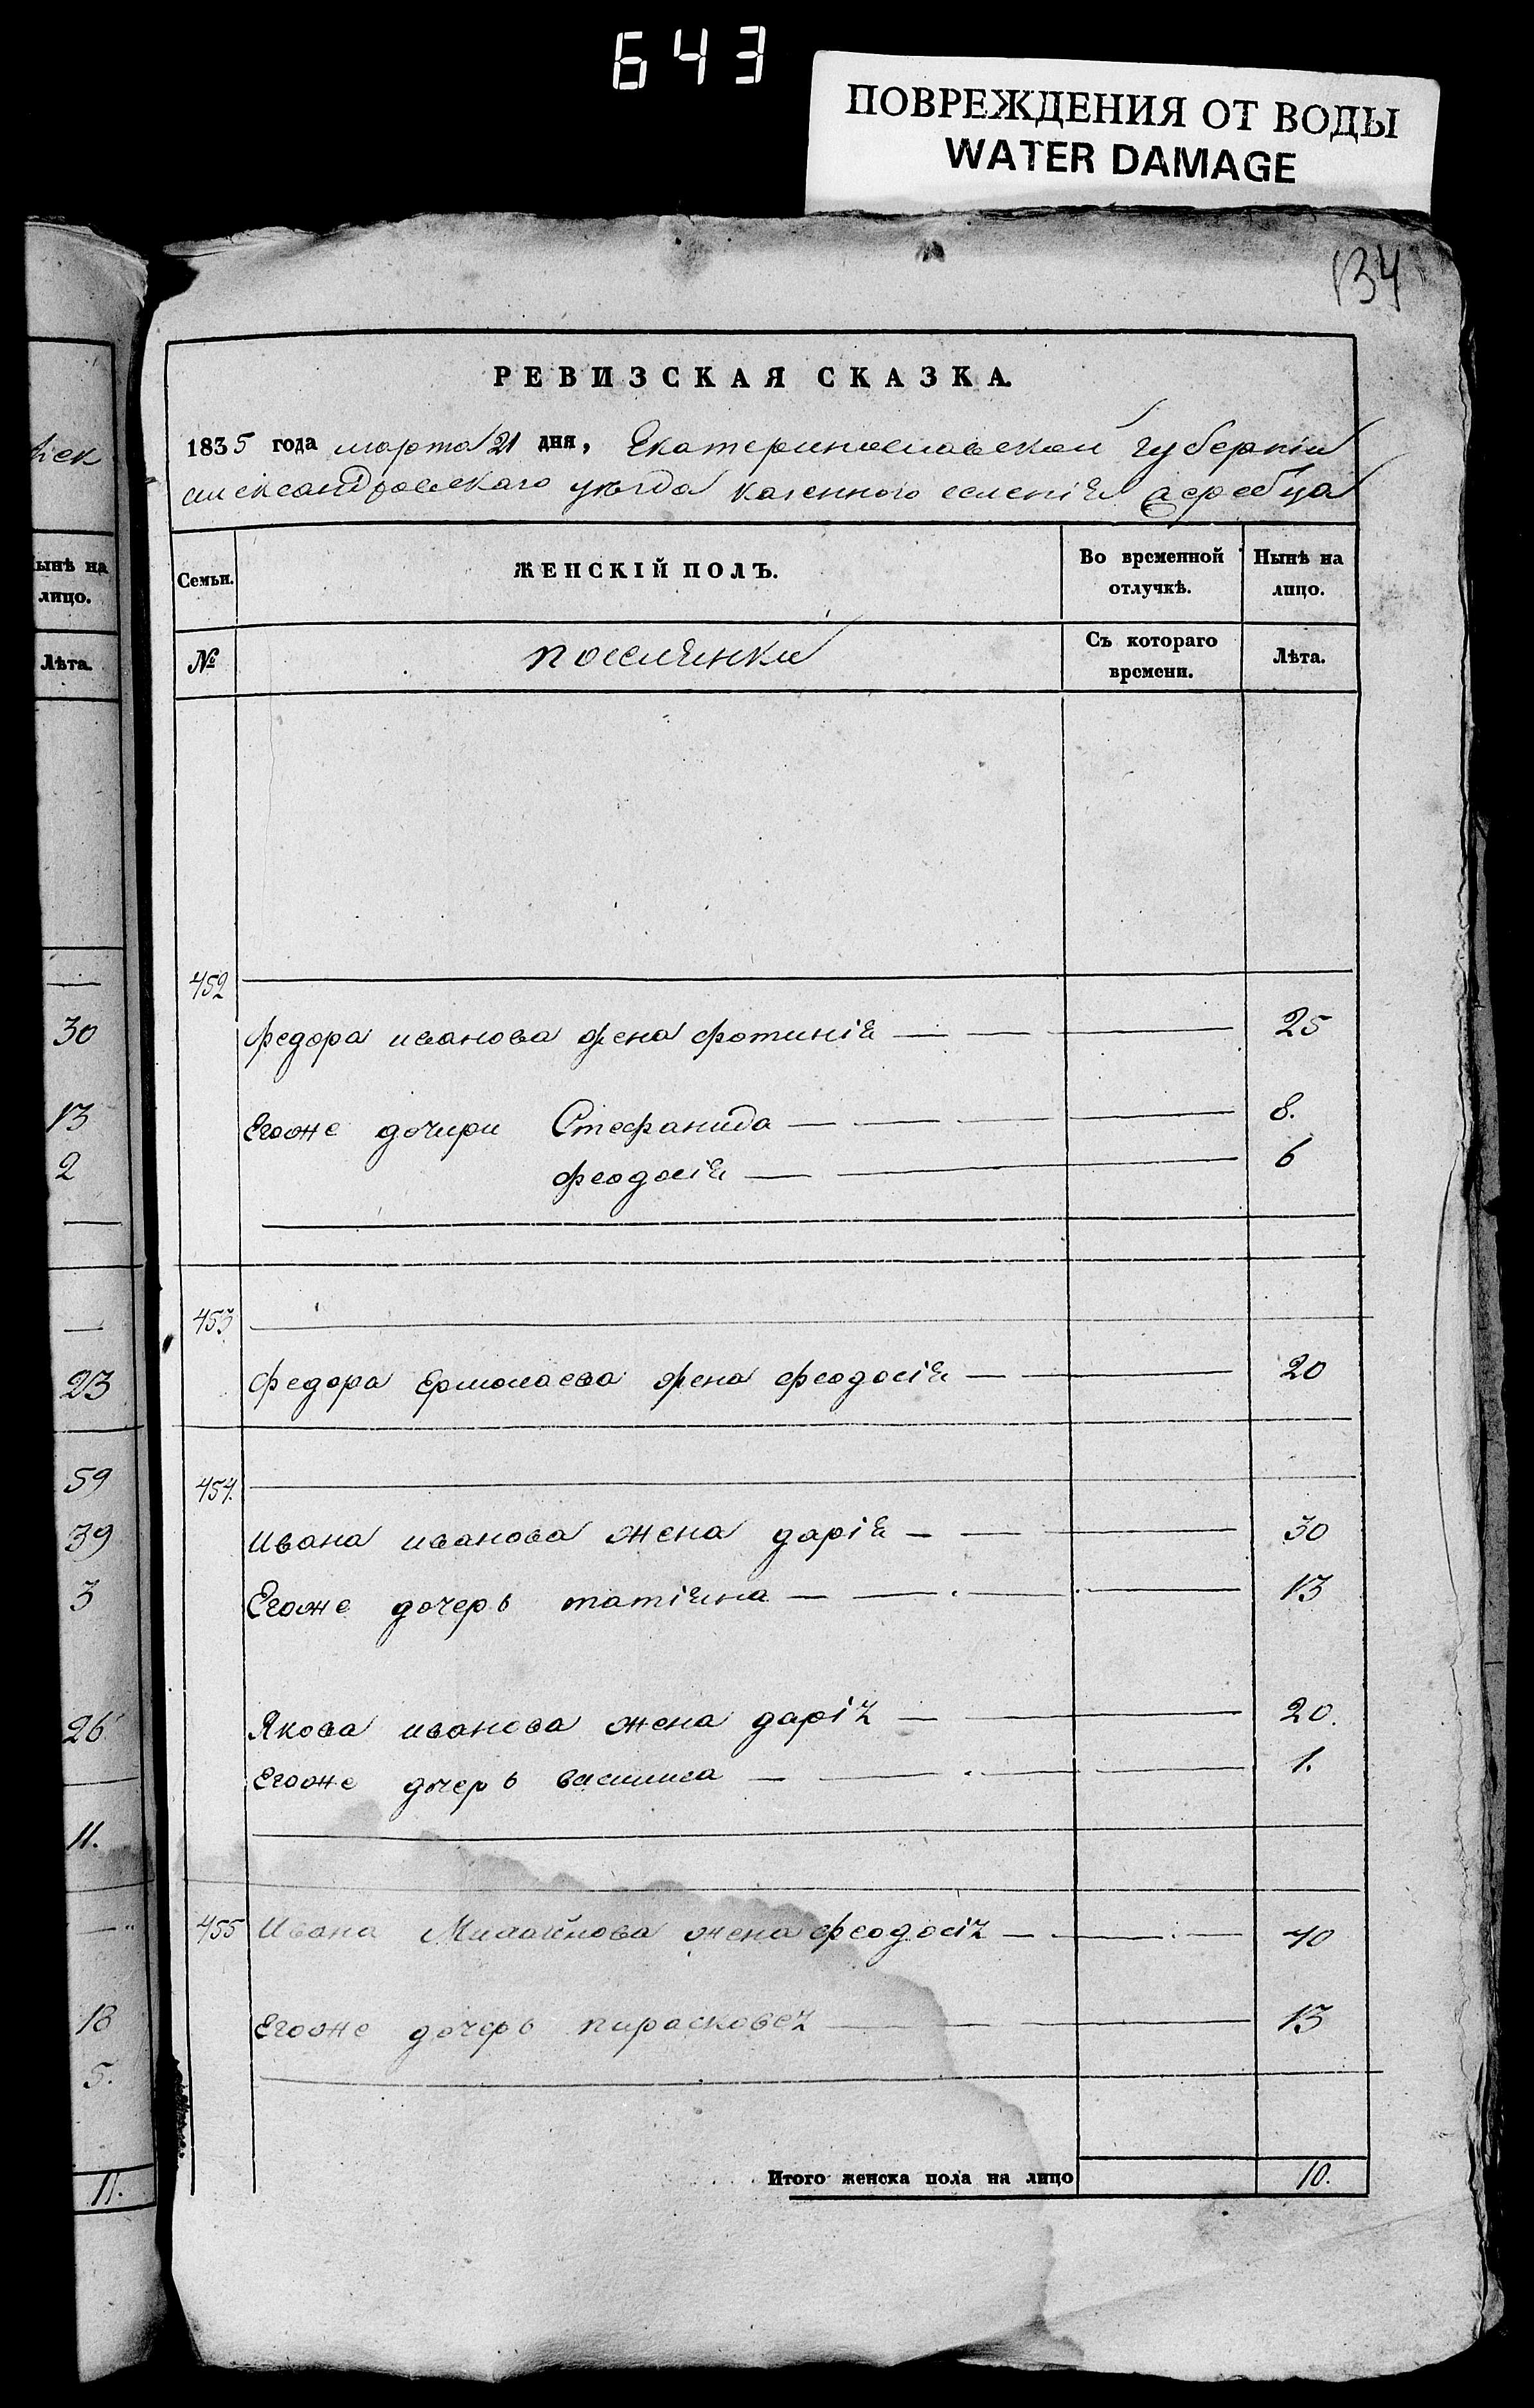 643
ПОВРЕЖДЕНИЯ ОТ ВОДЫ
WATER DAMAGE
134
РЕВИЗСКАЯ СКАЗКА.
1835 года марта 21 дня, Екатеринославской губернiи
александровскаго уѣзда казенного селенiя жеребца
Семьи.
ЖЕНСКІЙ ПОЛЪ.
Во временной отлучкѣ.
Нынѣ на лицо.
№
поселянки
Съ котораго времени.
Лѣта.
452
федора иванова жена фотинiя 25
Егоже дочири Стефанида 8.
феодосiя 6
453
федора Ермолаева жена феодосiя 20
454.
Ивана иванова жена дарiя 30
Егоже дочерь татiяна 13
Якова иванова жена дарiя 20.
Егоже дочерь василиса 1.
455 Ивана жена феодосiя 40
Егоже дочерь парасковея 13
Итого женска пола на лицо 10.
ынѣ на
лицо.
Лѣта.
30
13
2
23
59
39
3
26
11.
18
5.
11.